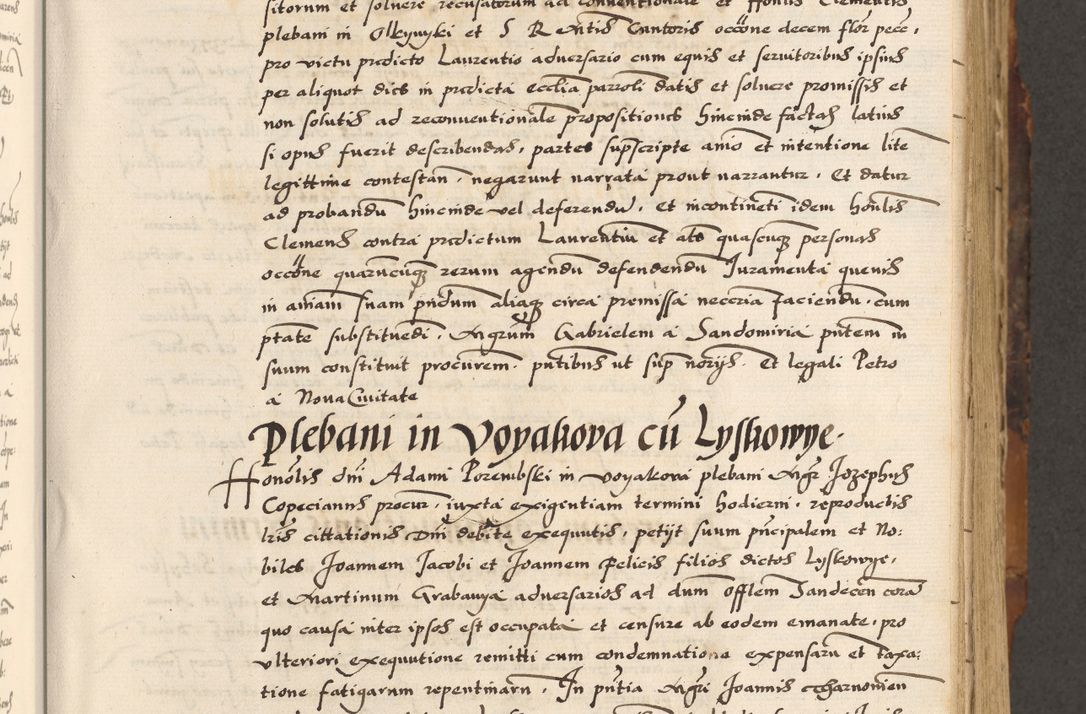 sitorum et solvere recusatorum ad conventionale et Honlis Clementis
plebani in Olkyuyki et S R Entis Cantoris occōne decem flor pecc,
pro victu predicto Laurentio adversario cum equis et servitoribus ipsius
per aliquot dies in predicta ecclīa parroli datis et solvere promissis et
non solutis ad reconventionale propositiones hincinde factas latius
si opus fuerit describendas, partes supscripte anīo et intentione lite
legittime contestan, negarunt narrata prout narrantur, Et datur
ad probandū hincinde vel deferendū, Et incontineti idem honlis
Clemens contra predictum Laurentiū et alš quascuq personas
occōne quarūcūq rerum agendū defendendū Juramenta quevis
in aniam suam pndum aliaq circa premissa necoria faciendū, cum
ptate substituēdi, Mgrum Gabrielem a Sandomiria pntem in
suum constituit procurem, pntibus ut sup norijs, Et legali Petro
a Nova Civitate
Plebani in Voyakova cū Lyskowye.
Honolis dni Adami Porembski in Voyakova plebani Mgr Jozephus
Copecianus procur, iuxta exigentiam termini hodierni, reproductis
lris cittationis Dni debite exequutis, petijt suum pncipalem et No:
biles Joannem Jacobi et Joannem Felicis filios dictos Lyskowye,
et Martinum Grabanya adversarios ad dnum Offlem Sandecen corā
quo causa inter ipsos est occupata et censure ab eodem emanate, pro
ulteriori exequutione remitti cum condemnatione expensarū et taxa:
tione fatigarum repentinarū, In pntia Mgri Joannis Czharnonien